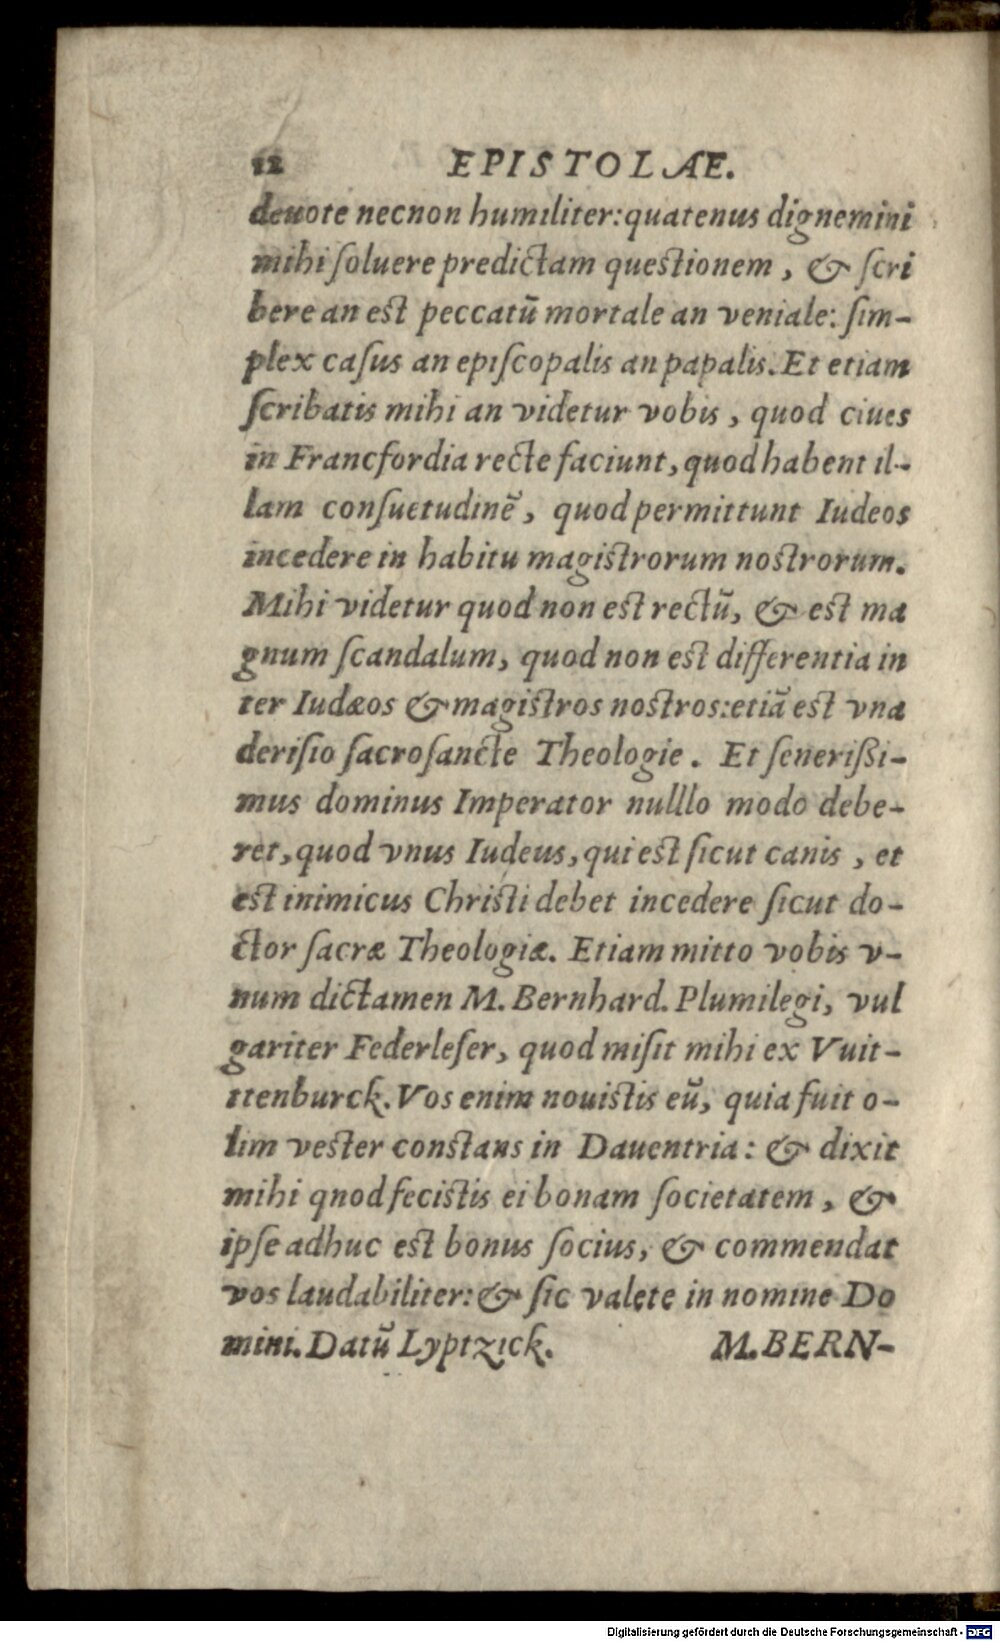 12 EPISTOLAE.
deuote necnon humiliter:quatenus dignemini
mihi ſoluere predictam queſtionem, & ſcri
bere an eſt peccatū mortale an veniale: ſim-
plex caſus an epiſcopalis an papalis. Et etiam
ſcribatis mihi an videtur vobis, quod ciues
in Francfordia recte faciunt, quod habent il-
lam conſuetudinē, quod permittunt Iudeos
incedere in habitu magiſtrorum noſtrorum.
Mihi videtur quod non eſt rectū, & eſt ma
gnum ſcandalum, quod non eſt differentia in
ter Iudæos & magiſtros noſtros:etiā eſt vna
deriſio ſacroſancte Theologie. Et ſenerißi-
mus dominus Imperator nulllo modo debe-
ret, quod vnus Iudeus, qui eſt ſicut canis, et
eſt inimicus Chriſti debet incedere ſicut do-
ctor ſacræ Theologiæ. Etiam mitto vobis v-
num dictamen M. Bernhard. Plumilegi, vul
gariter Federleſer, quod miſit mihi ex Vuit-
ttenburck. Vos enim nouiſtis eū, quia fuit o-
lim veſter conſtans in Dauentria: & dixit
mihi qnod feciſtis ei bonam ſocietatem, &
ipſe adhuc eſt bonus ſocius, & commendat
vos laudabiliter: & ſic valete in nomine Do
mini. Datū Lyptzick. M. BERN-
Digitalisierung gefördert durch die Deutsche Forschungsgemeinschaft - DFG